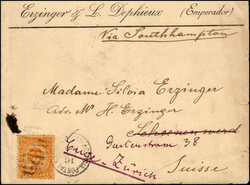 Erzinger & L. Dephieux (Emperador)
Via Southhampton
Madame Silvia Erzinger
Adr. Mr H. Erzinger
Schoenenwerd
38
Enge-Zürich
Suisse